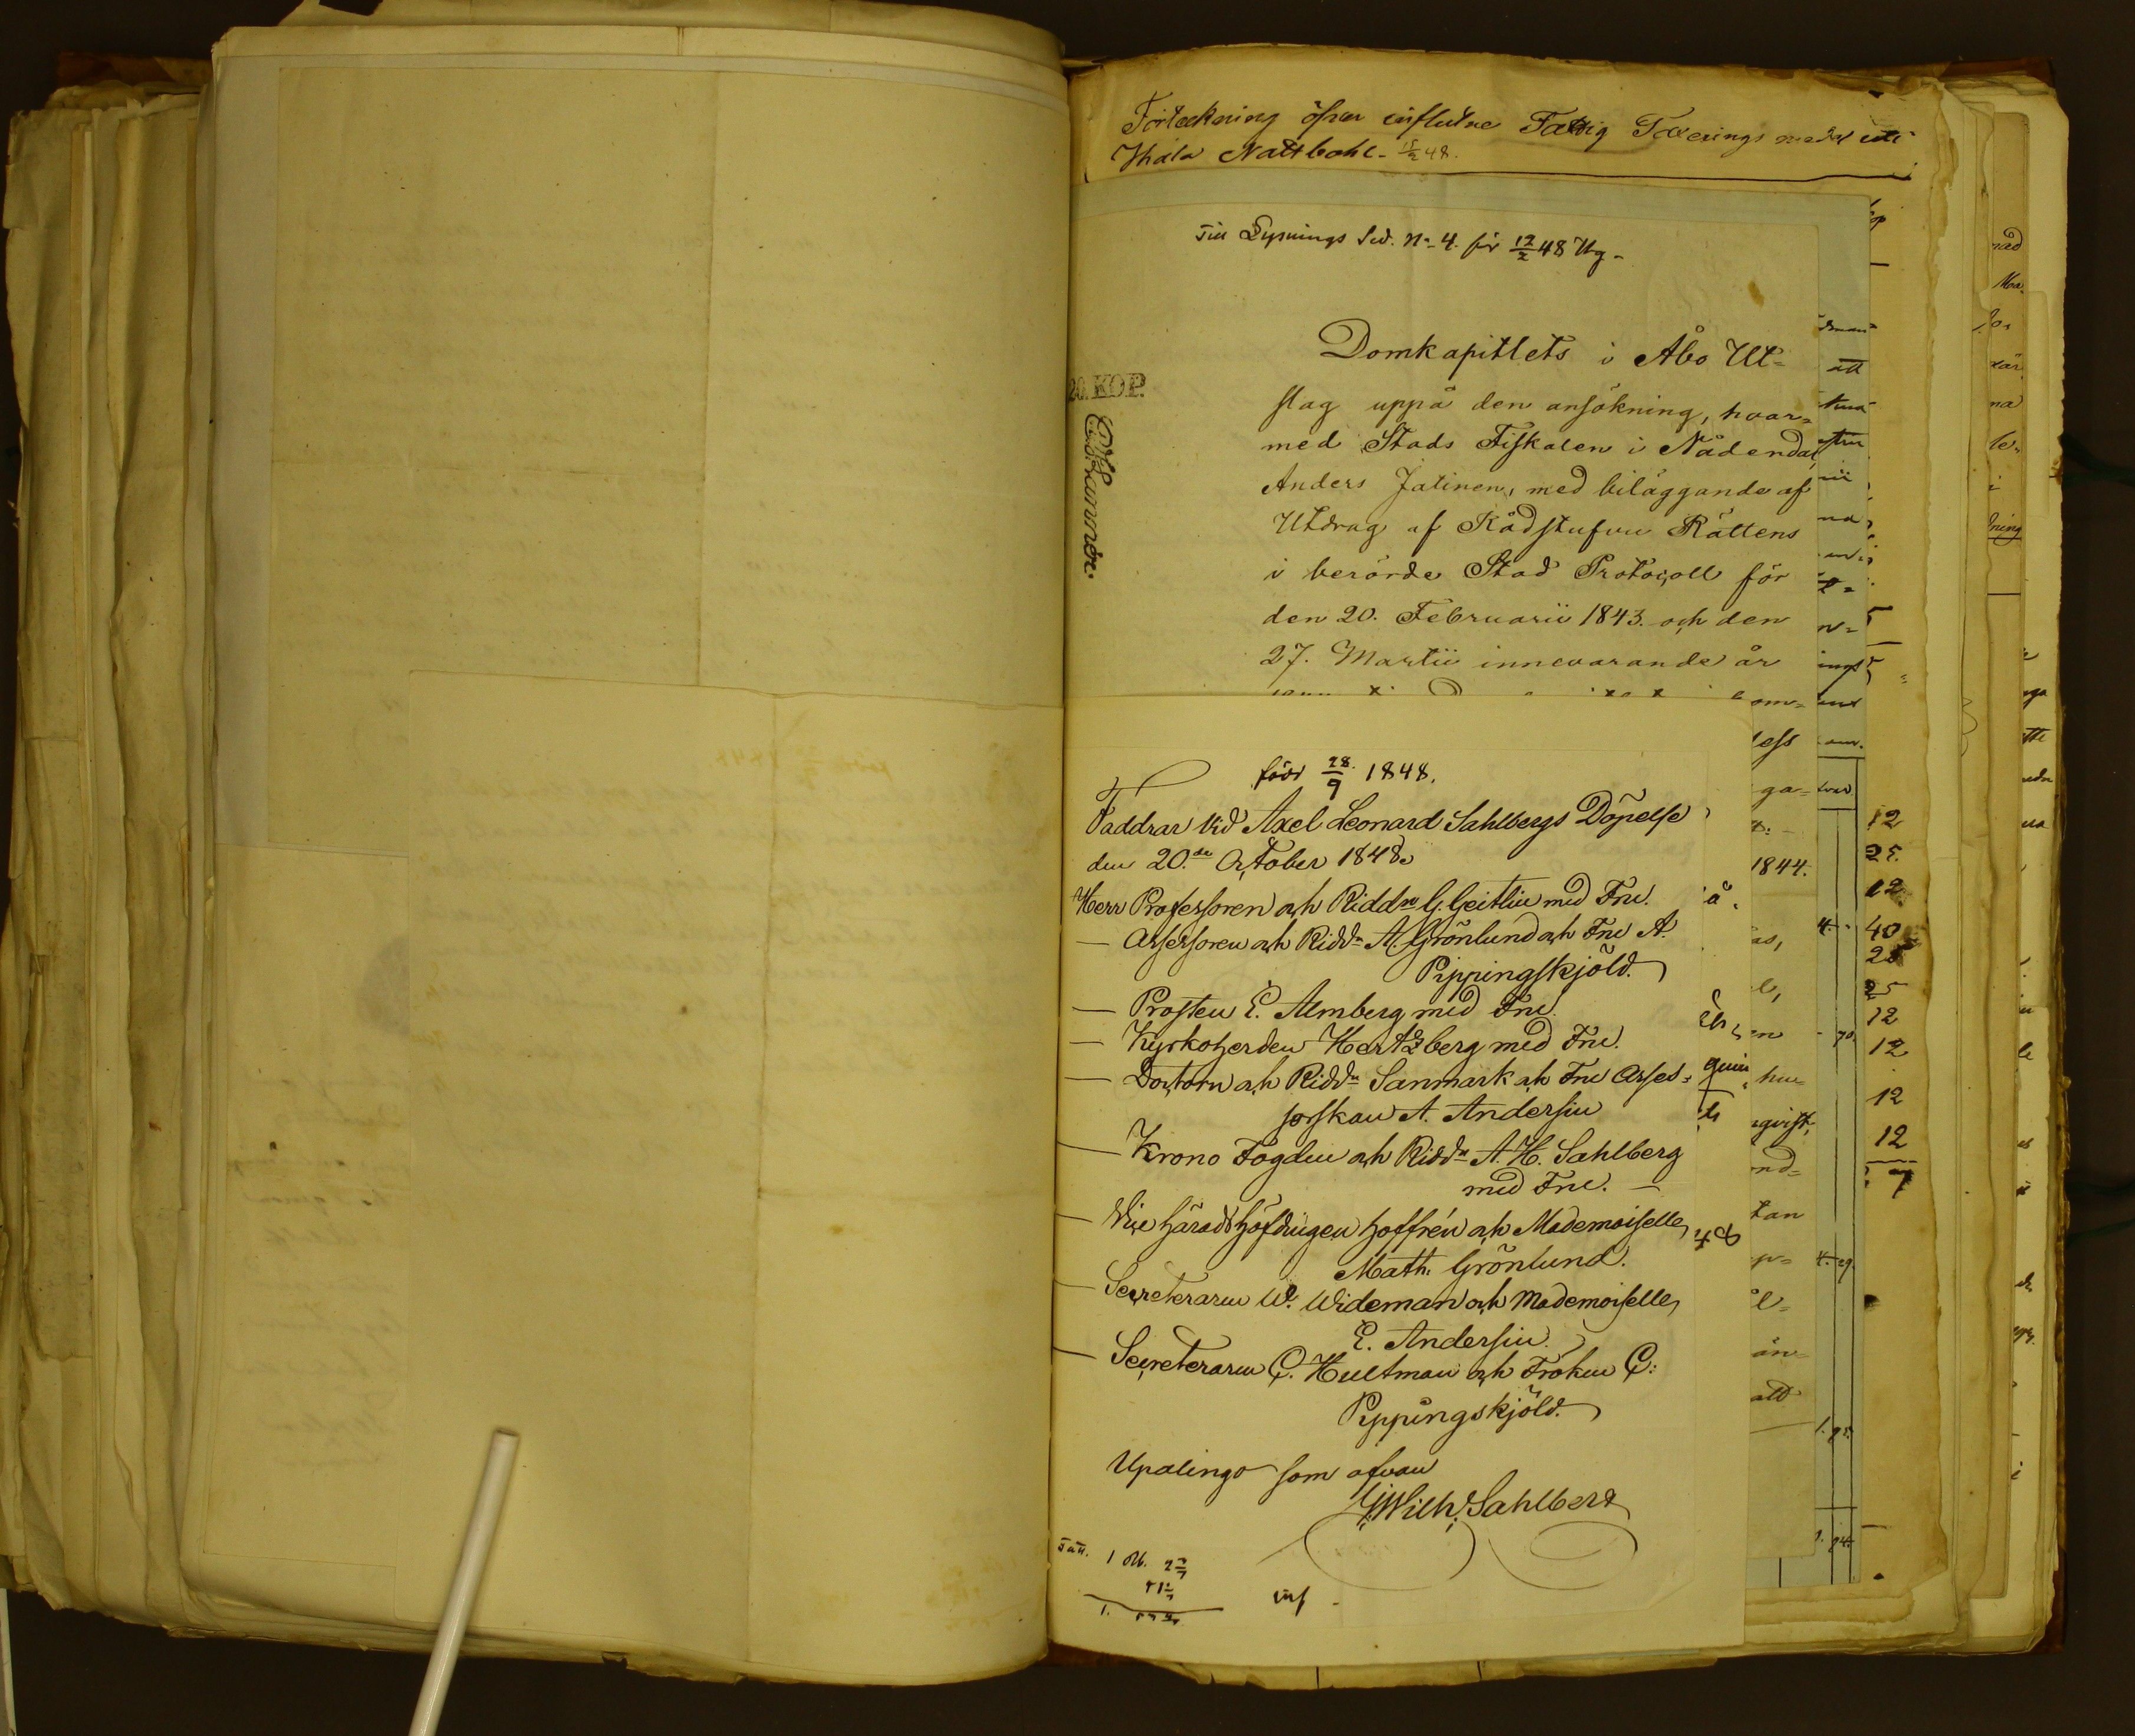 Förteckning öfver influtne Fattig Taxerings medel uti
Ihala Nattbohl. 15/2 48.
Till Lysnings Sed. No 4. för 12/2 48 Hg.
Domkapitlets i Åbo Ut=
slag uppå den ansökning, hvar=
med Stads Fiskalen i Nådendal,
Anders Jalinen, med biläggande af
Utdrag af Rådstufvu Rättens
i berörde Stad Protocoll för
den 20. Februarii 1843. och den
27. Martii innevarande år
20. KOP.
född 28/9 1848.
Faddrar vid Axel Leonard Sahlbergs Döpelse
den 20.de October 1848.
Herr Professoren och Riddn G. Geitlin med Fru.
— Assessoren och Riddn A. Grönlund och Fru A.
Pippingskjöld.
— Prosten E. Almberg med Fru.
— Kyrkoherden Hertzberg med Fru.
— Doctorn och Riddn Sanmark och Fru Asses=
sorskan A. Andersin
— Krono Fogden och Riddn A. H. Sahlberg
med Fru. —
— Vice Häradshöfdingen Hoffrén och Mademoiselle
Math. Grönlund.
— Secreteraren W. Wideman och Mademoiselle
E. Andersin.
— Secreteraren C. Hultman och Fröken C:
Pippingskjöld.
Upalingo som ofvan
G. Wilh. Sahlberg
1844.
12
25.
12
40
25
25
12
12
12
12